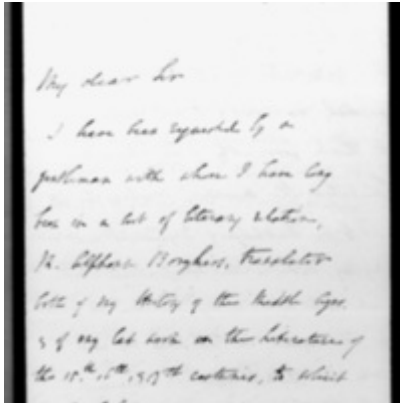 My dear Sir
I have been requested by a
gentleman with whom I have long
been in a sort of literary relation,
M. Alphonse Borghers, translator
both of my History of the Middle Ages,
& of my last work on the Literature of
the 15.th, 16th, & 17th centuries, to solicit